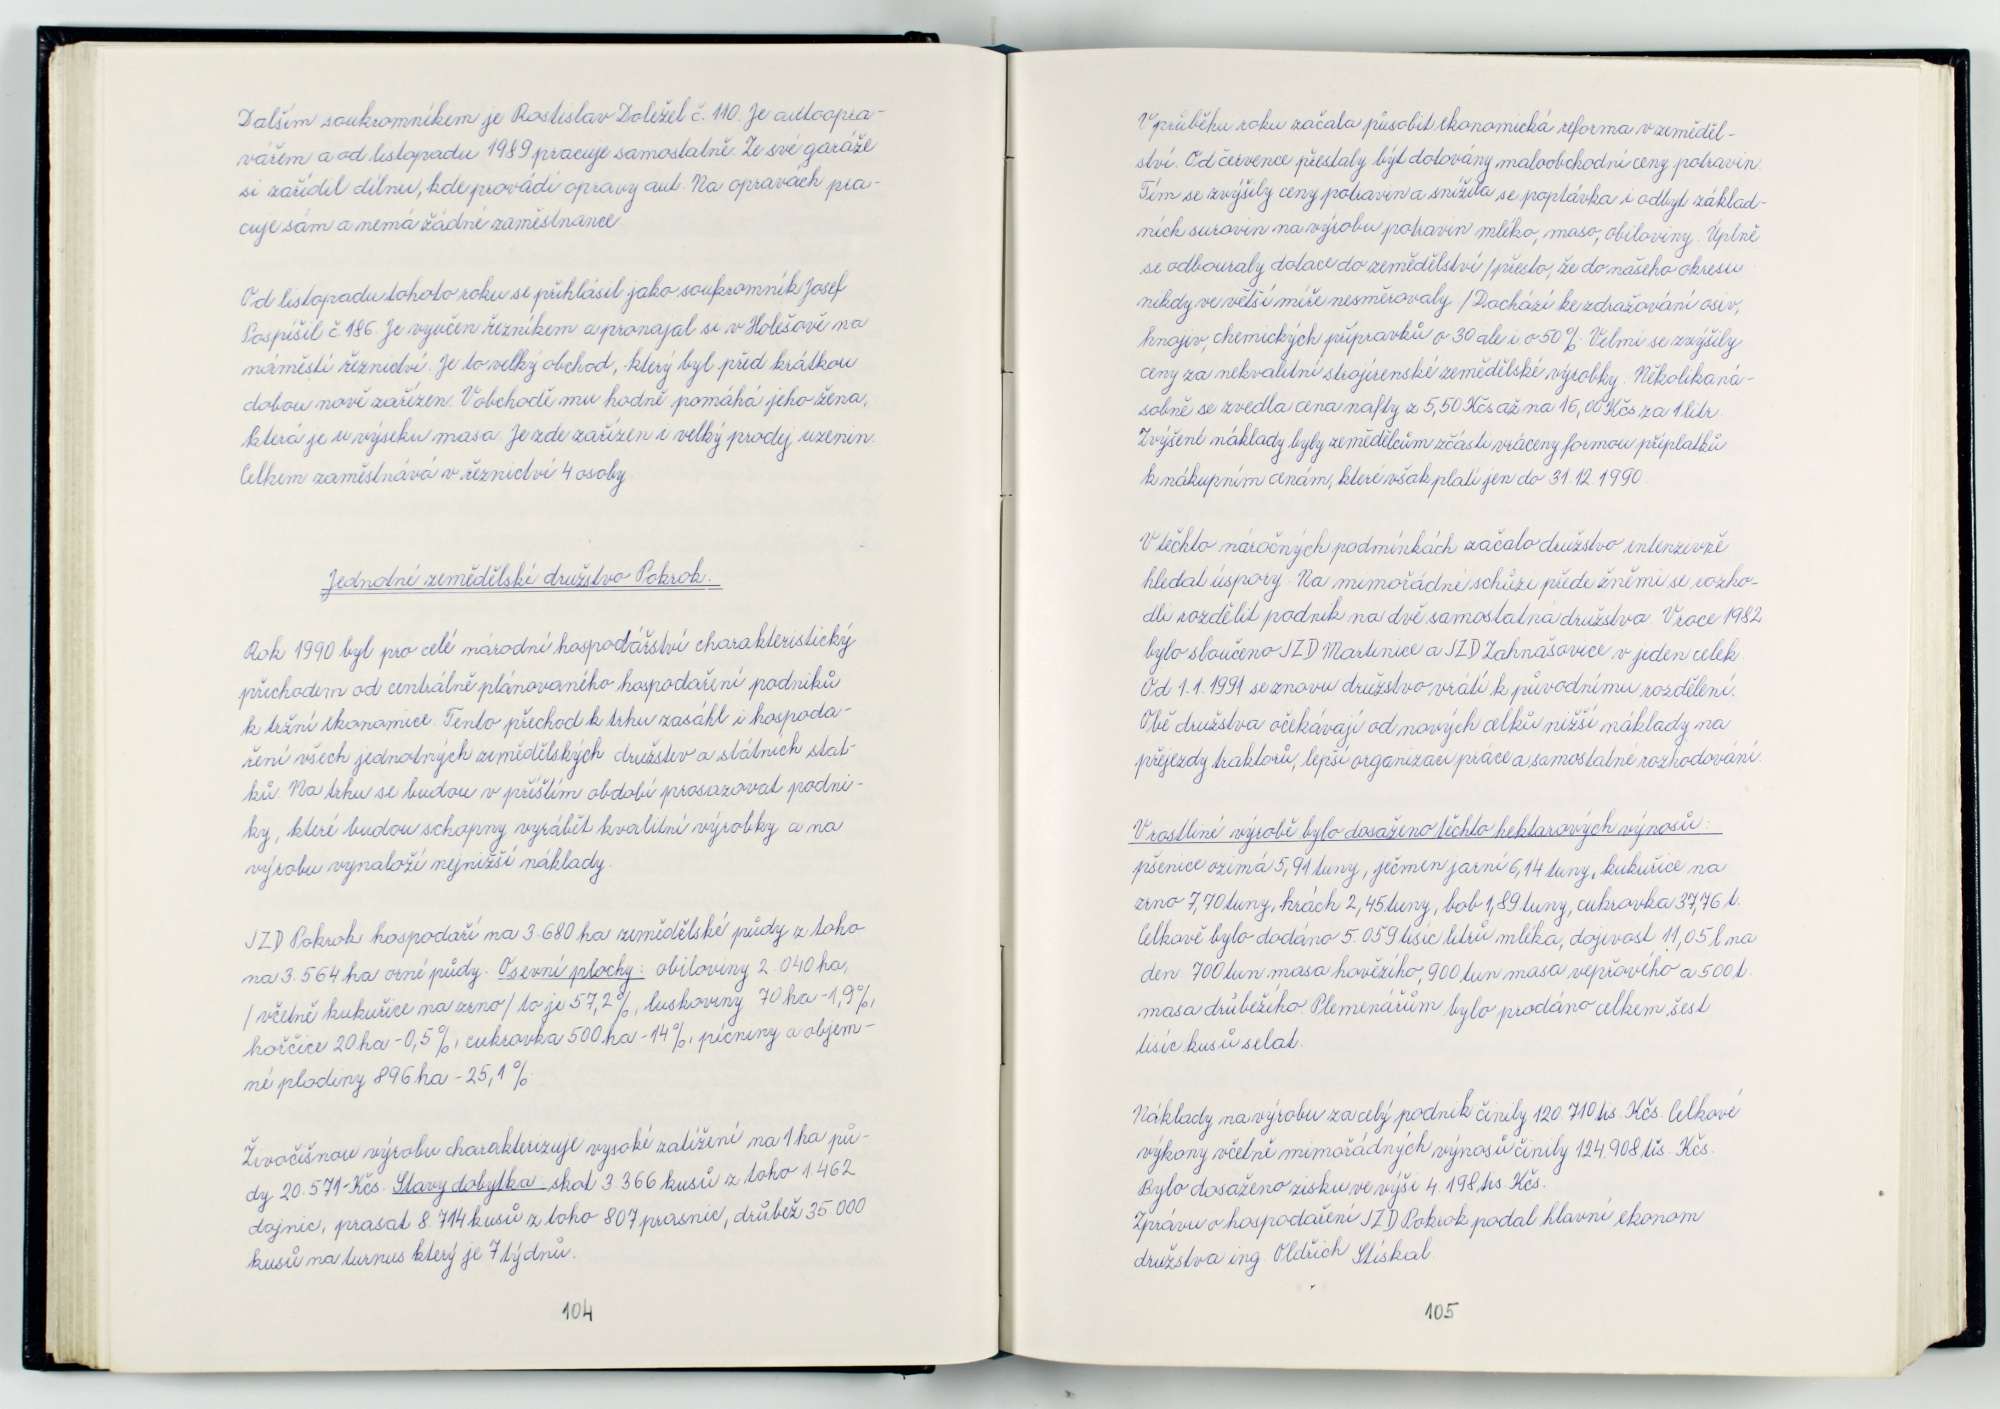 Dalším soukromníkem je Rostislav Doležel č. 110. Je autoopra-
vářem a od listopadu 1989 pracuje samostatně. Ze své garáže
si zařídil dílnu, kde provádí opravy aut. Na opravách pra-
cuje sám a nemá žádné zaměstnance
Od listopadu tohoto roku se přihlásil jako soukromník Josef
Pospíšil č 186. Je vyučen řezníkem a pronajal si v Holešově na
náměstí řeznictví. Je to velký obchod, který byl před krátkou
dobou nově zařízen. V obchodě mu hodně pomáhá jeho žena,
která je u výseku masa. Je zde zařízen i velký prodej uzenin.
Celkem zaměstnává v řeznictví 4 osoby.
Jednotné zemědělské družstvo Pokrok.
Rok 1990 byl pro celé národní hospodářství charakteristický
přechodem od centrálně plánovaného hospodaření podniků
k tržní ekonomice. Tento přechod k trhu zasáhl i hospoda-
ření všech jednotných zemědělských družstev a státních stat-
ků. Na trhu se budou v příštím období prosazovat podni-
ky, které budou schopny vyrábět kvalitní výrobky a na
výrobu vynaloží nejnižší náklady.
JZD Pokrok hospodaří na 3.680 ha zemědělské půdy z toho
na 3.564 ha orné půdy. Osevní plochy: obiloviny 2.040 ha,
/včetně kukuřice na zrno/ to je 57,2%, luskoviny 70 ha - 1,9%,
hořčice 20 ha - 0,5%, cukrovka 500 ha - 14%, pícniny a objem-
né plodiny 896 ha - 25,1%.
Živočišnou výrobu charakterizuje vysoké zatížení na 1 ha pů-
dy 20.571,-Kčs. Stavy dobytka skot 3.366 kusů z toho 1462
dojnic, prasat 8.714 kusů z toho 807 prasnic, drůbež 35.000
kusů na turnus který je 7 týdnů.
104
V průběhu roku začala působit ekonomická reforma v zeměděl-
ství. Od července přestaly být dotovány maloobchodní ceny potravin.
Tím se zvýšily ceny potravin a snížila se poptávka i odbyt základ-
ních surovin na výrobu potravin mléko, maso, obiloviny. Úplně
se odbouraly dotace do zemědělství /přesto, že do našeho okresu
nikdy ve větší míře nesměrovaly./ Dochází ke zdražování osiv,
hnojiv, chemických přípravků o 30 ale i o 50%. Velmi se zvýšily
ceny za nekvalitní strojírenské zemědělské výrobky. Několikaná-
sobně se zvedla cena nafty z 5,50 Kčs až na 16,00 Kčs za 1 litr.
Zvýšené náklady byly zemědělcům zčásti vráceny formou příplatků
k nákupním cenám, které však platí jen do 31.12.1990.
V těchto náročných podmínkách začalo družstvo intenzivně
hledat úspory. Na mimořádné schůzi přede žněmi se rozho-
dli rozdělit podnik na dvě samostatná družstva. V roce 1982
bylo sloučeno JZD Martinice a JZD Zahnašovice v jeden celek.
Od 1.1.1991 se znovu družstvo vrátí k původnímu rozdělení.
Obě družstva očekávají od nových celků nižší náklady na
přejezdy traktorů, lepší organizaci práce a samostatné rozhodování.
V rostliné výrobě bylo dosaženo těchto hektarových výnosů:
pšenice ozimá 5,91 tuny, ječmen jarní 6,14 tuny, kukuřice na
zrno 7,70 tuny, hrách 2,45 tuny, bob 1,89 tuny, cukrovka 37,76 t.
Celkově bylo dodáno 5.059 tisíc litrů mléka, dojivost 11,05 l na
den. 700 tun masa hovězího, 900 tun masa vepřového a 500 t.
masa drůbežího. Plemenářům bylo prodáno celkem šest
tisíc kusů selat.
Náklady na výrobu za celý podnik činily 120.710 tis. Kčs. Celkové
výkony včetně mimořádných výnosů činily 124.908 tis. Kčs.
Bylo dosaženo zisku ve výši 4.198 tis Kčs.
Zprávu o hospodaření JZD Pokrok podal hlavní ekonom
družstva ing. Oldřich Stískal.
105